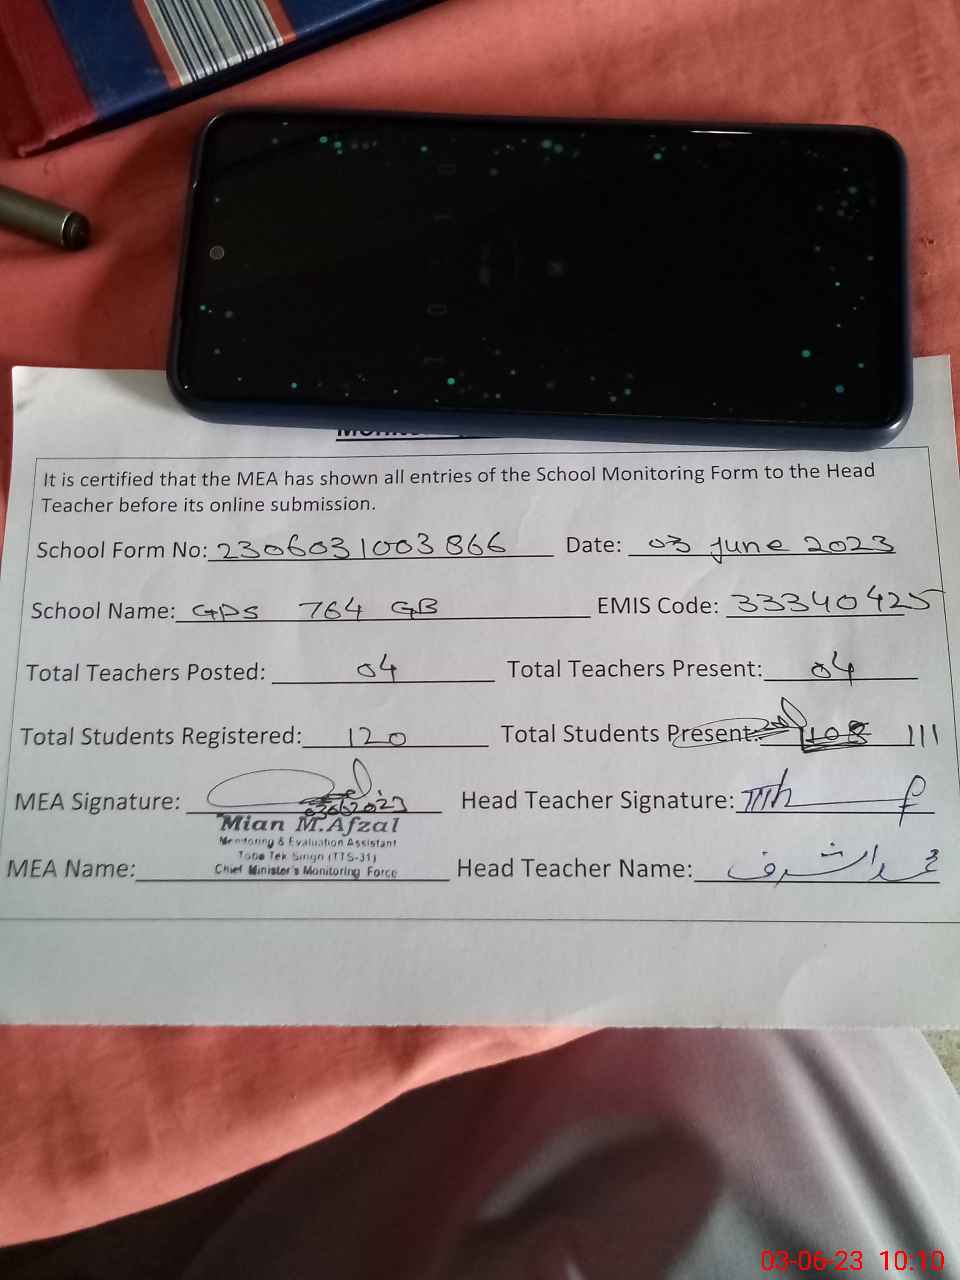 It is certified that the MEA has shown all entries of the School Monitoring Form to the Head
Teacher before its online submission.
School Form No: 2306031003866 Date: 03 june 2023
School Name: GPS 764 GB EMIS Code: 33340425
Total Teachers Posted: 04 Total Teachers Present: 04
Total Students Registered: 120 Total Students Present: 108 111
MEA Signature: 03062023 Head Teacher Signature:
Mian M.Afzal
Monitoring & Evaluation Assistant
Toba Tek Singh (TTS-31)
Chief Minister's Monitoring Force
MEA Name: Head Teacher Name: محمد اشرف
03-06-23 10:10